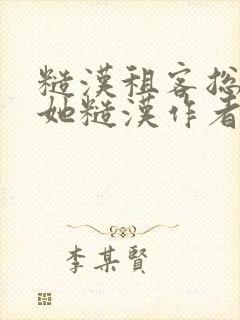 糙漢租客总
她糙漢作者
李某賢